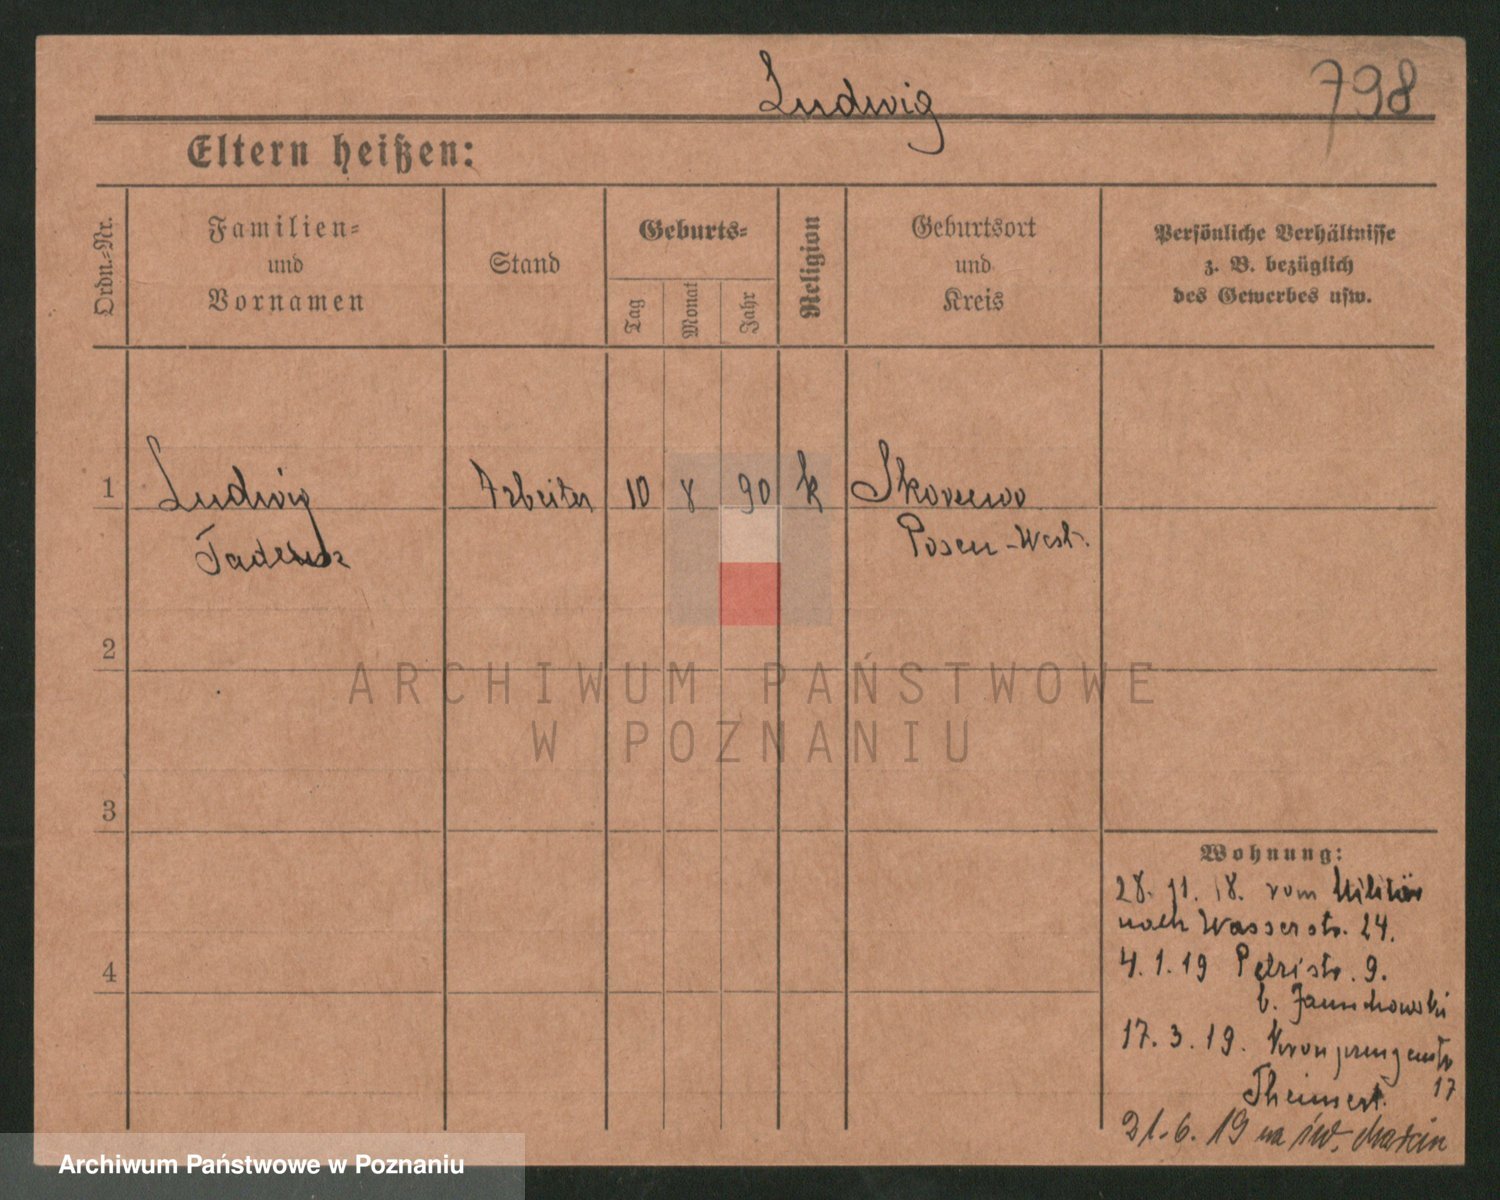 Ludwig
798
Eltern heißen:
Ordn.-Nr.
Familien-
und
Vornamen
Stand
Geburts-
Tag
Monat
Jahr
Religion
Geburtsort
und
Kreis
Persönliche Verhältnisse
z. B. bezüglich
des Gewerbes usw.
1 Ludwig Arbeiter 10 8 90 k
Tadeusz Posen-West.
2
ARCHIWUM PAŃSTWOWE
W POZNANIU
3
Wohnung:
28. 11. 18. vom Militär
nach Wasserstr. 24.
4
4. 1. 19 Petristr. 9.
b.
17. 3. 19. Kronprinzenstr
17
21. 6. 19 na św. Marcin
Archiwum Państwowe w Poznaniu